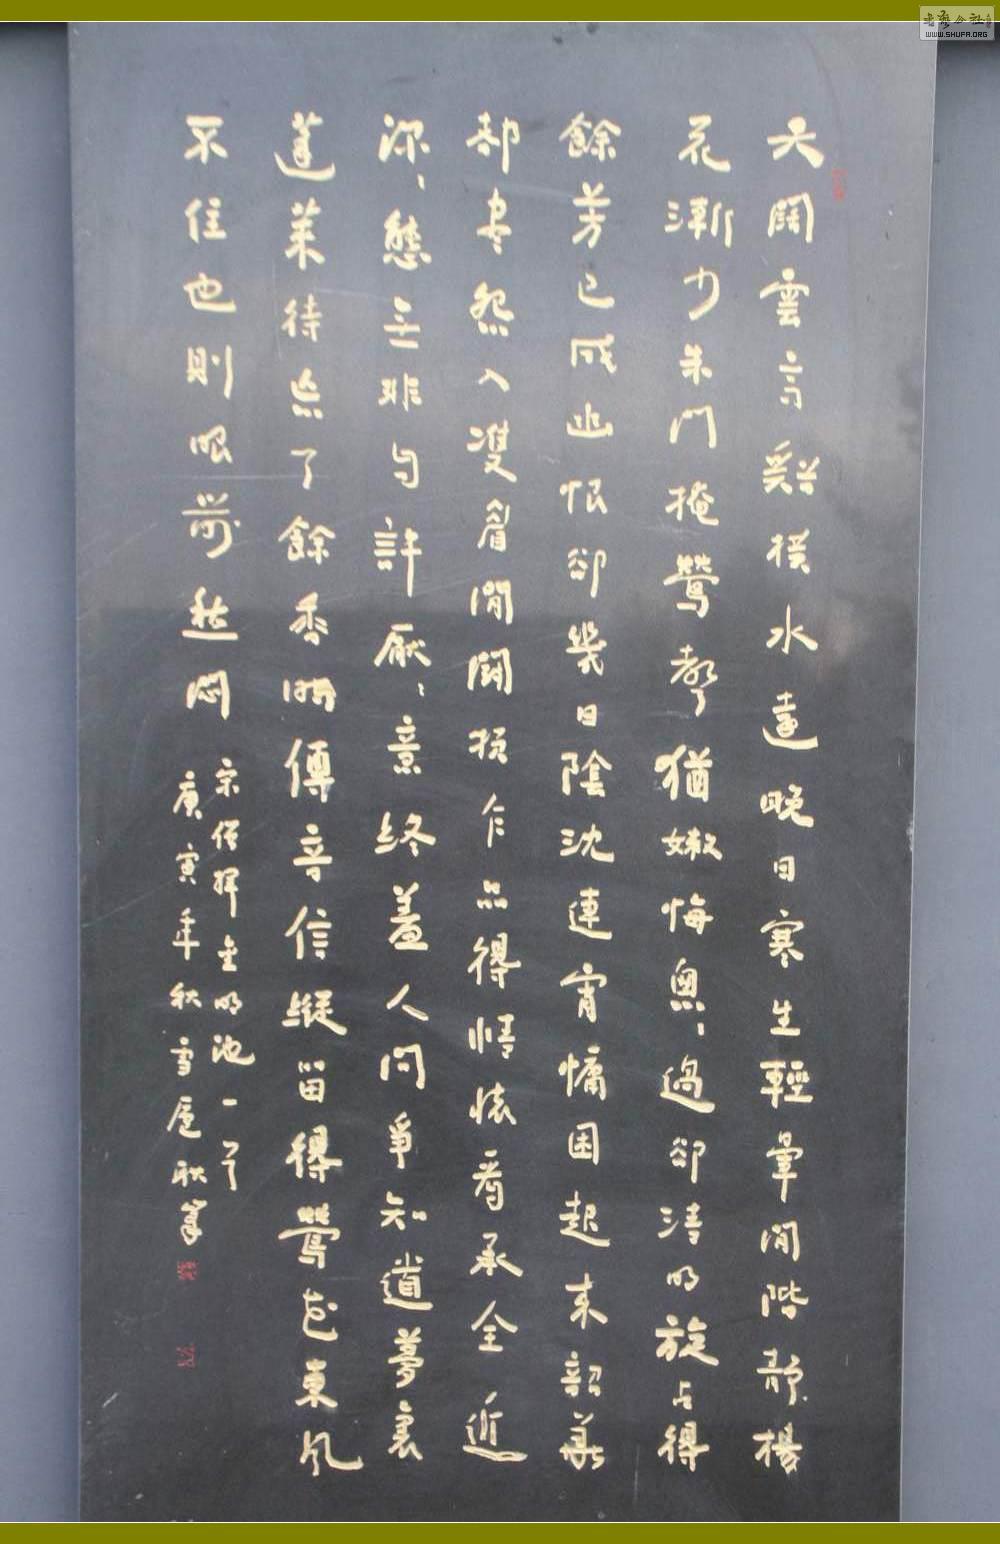 天闊雲高谿橫水遠晚日寒生輕暈閒階靜楊
花漸少朱門掩鶯聲猶嫩悔悤〻過卻清明旋占得
餘芳已成幽恨卻幾日陰沈連宵慵困起來韶華
都盡怨入雙眉閒鬭損乍品得情懷看承全近
深〻態無非許厭〻意終羞人問爭知道夢裏
蓬萊待忘了餘香時傳音信縱留得鶯花東風
不住也則眼前愁悶
宋僧揮金明池一首
庚寅年秋雪扈耿
WWW.SHUFA.ORG